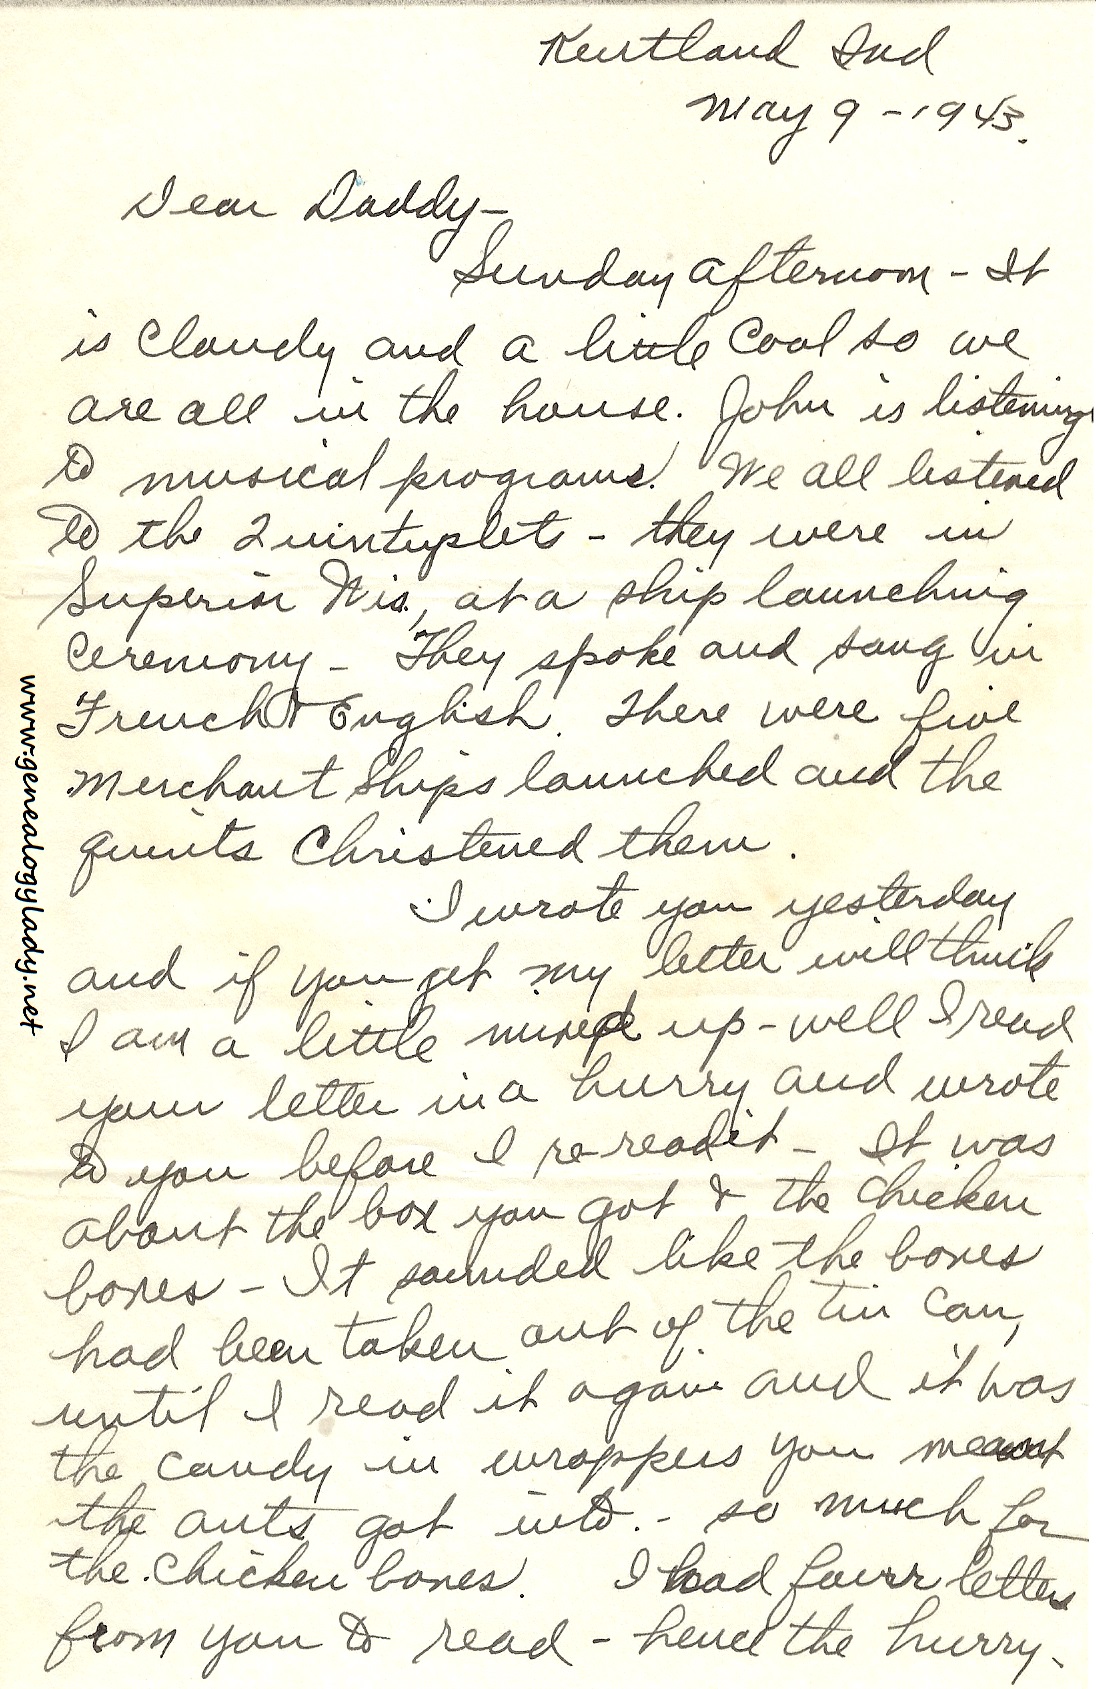 Kentland Ind
May 9 - 1943.
Dear Daddy-
Sunday afternoon - It
is Cloudy and a little Cool so we
are all in the house. John is listening
to musical programs! We all listened
to the Quintuplets - they were in
Superior Wis, at a ship launching
Ceremony - They spoke and sang in
French & English. There were five
Merchant Ships launched and the
quints Christened them.
I wrote you yesterday
and if you get my letter will think
I am a little mixed up - well I read
your letter in a hurry and wrote
to you before I re-read it - It was
about the box you got & the chicken
bones - It sounded like the bones
had been taken out of the tin can,
until I read it again and it was
the candy in wrappers you meant
the ants got into. - so much for
the chicken bones. I had four letters
from you to read - hence the hurry -
www.genealogylady.net